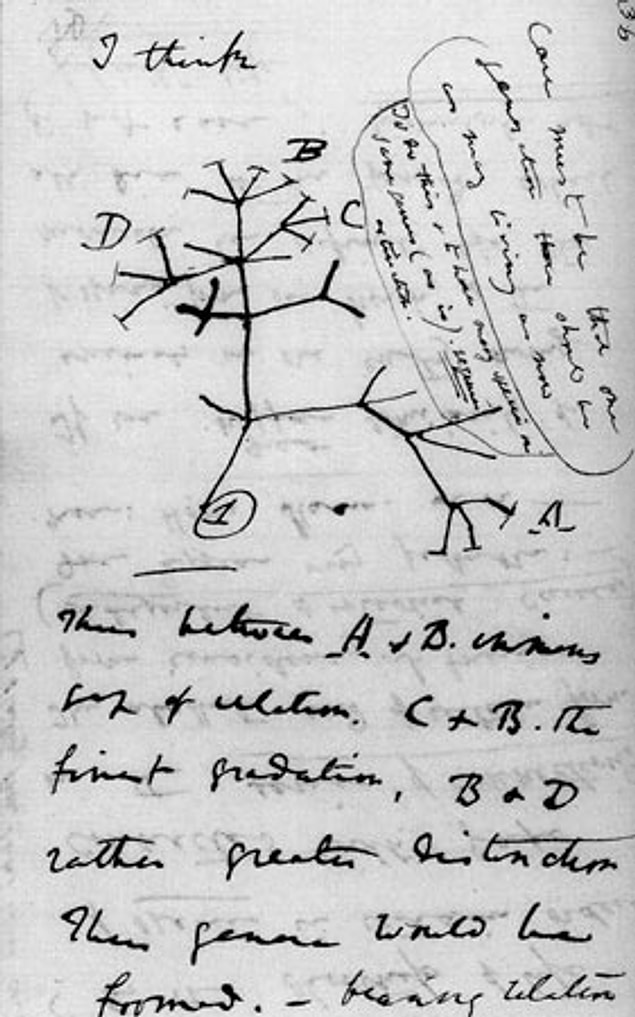 I think
Case must be that one
generation then should be
as many living as now
To do this & to have many species in
same genus (as is). requires
extinction.
B
C
D
A
1
36
Thus between A & B. immens
gap of relation. C & B. the
finest gradation, B & D
rather greater distinction
Thus genera would be
formed. — bearing relation